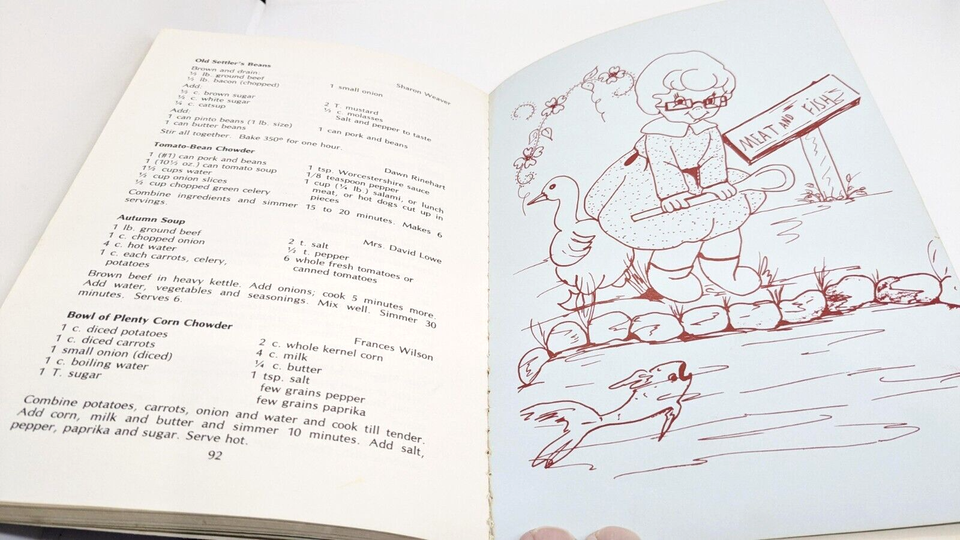 Old Settler's Beans
Sharon Weaver
Brown and drain:
½ lb. ground beef
½ lb. bacon (chopped)
1 small onion
Add:
½ c. brown sugar
½ c. white sugar
¼ c. catsup
2 T. mustard
½ c. molasses
Salt and pepper to taste
Add:
1 can pinto beans (1 lb. size)
1 can butter beans
1 can pork and beans
Stir all together. Bake 350° for one hour.
Tomato-Bean Chowder
Dawn Rinehart
1 (#1) can pork and beans
1 (10½ oz.) can tomato soup
1½ cups water
½ cup onion slices
½ cup chopped green celery
1 tsp. Worcestershire sauce
1/8 teaspoon pepper
1 cup (¼ lb.) salami, or lunch
meat, or hot dogs cut up in
pieces
Combine ingredients and simmer 15 to 20 minutes. Makes 6
servings.
Autumn Soup
Mrs. David Lowe
1 lb. ground beef
1 c. chopped onion
4 c. hot water
1 c. each carrots, celery,
potatoes
2 t. salt
½ t. pepper
6 whole fresh tomatoes or
canned tomatoes
Brown beef in heavy kettle. Add onions; cook 5 minutes more.
Add water, vegetables and seasonings. Mix well. Simmer 30
minutes. Serves 6.
Bowl of Plenty Corn Chowder
Frances Wilson
1 c. diced potatoes
1 c. diced carrots
1 small onion (diced)
1 c. boiling water
1 T. sugar
2 c. whole kernel corn
4 c. milk
¼ c. butter
1 tsp. salt
few grains pepper
few grains paprika
Combine potatoes, carrots, onion and water and cook till tender.
Add corn, milk and butter and simmer 10 minutes. Add salt,
pepper, paprika and sugar. Serve hot.
92
MEAT AND FISH